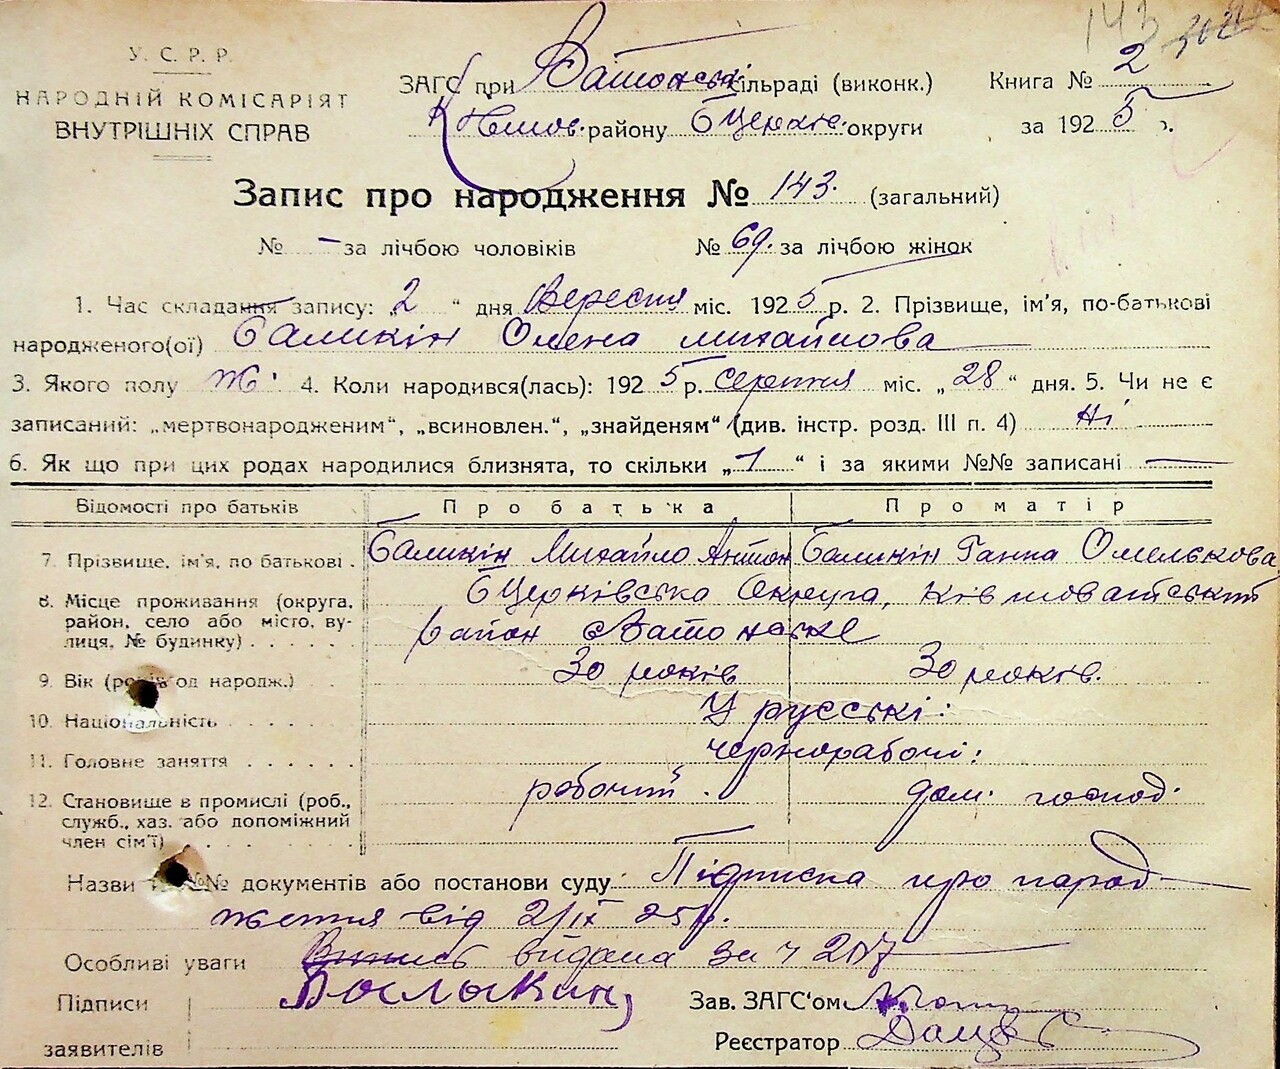 143
У. С. Р. Р.
НАРОДНІЙ КОМІСАРІЯТ
ВНУТРІШНІХ СПРАВ
ЗАГС при сільраді (виконк.)
району БЦерків. округи
Книга № 2
за 1925 р.
Запис про народження № 143. (загальний)
№ – за лічбою чоловіків № 69. за лічбою жінок
1. Час складання запису: „2“ дня Вересня міс. 1925 р. 2. Прізвище, ім'я, по-батькові
народженого(ої) Баликін Олена михайлова
3. Якого полу Ж. 4. Коли народився(лась): 1925 р. серпня міс. „28“ дня. 5. Чи не є
записаний: „мертвонародженим“, „всиновлен.“, „знайденям“ (див. інстр. розд. III п. 4) Ні
6. Як що при цих родах народилися близнята, то скільки „1“ і за якими №№ записані —
Відомості про батьків Про батька Про матір
7. Прізвище, ім'я, по батькові . Баликін Михайло Антон Баликін Ганна Омелькова
8. Місце проживання (округа, БЦерківська Округа,
район, село або місто, ву- район
лиця, № будинку) . . . . .
9. Вік (років од народж.) 30 років 30 років.
10. Національність . . . . . . Урусські:
11. Головне заняття . . . . . . чернорабочі:
12. Становище в промислі (роб., робочий. дом. господ.
служб., хаз. або допоміжний
член сім'ї) . . . . . . .
Назви №№ документів або постанови суду: Підписка про народ
ження від 2/IX 25р.
Особливі уваги Випись видана за ч 217
Підписи
заявителів
Зав. ЗАГС'ом
Реєстратор